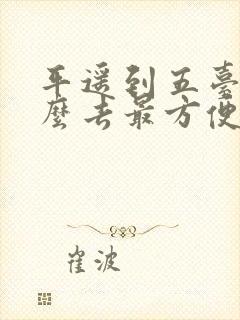 平遥到五臺
麼去最方便
崔波